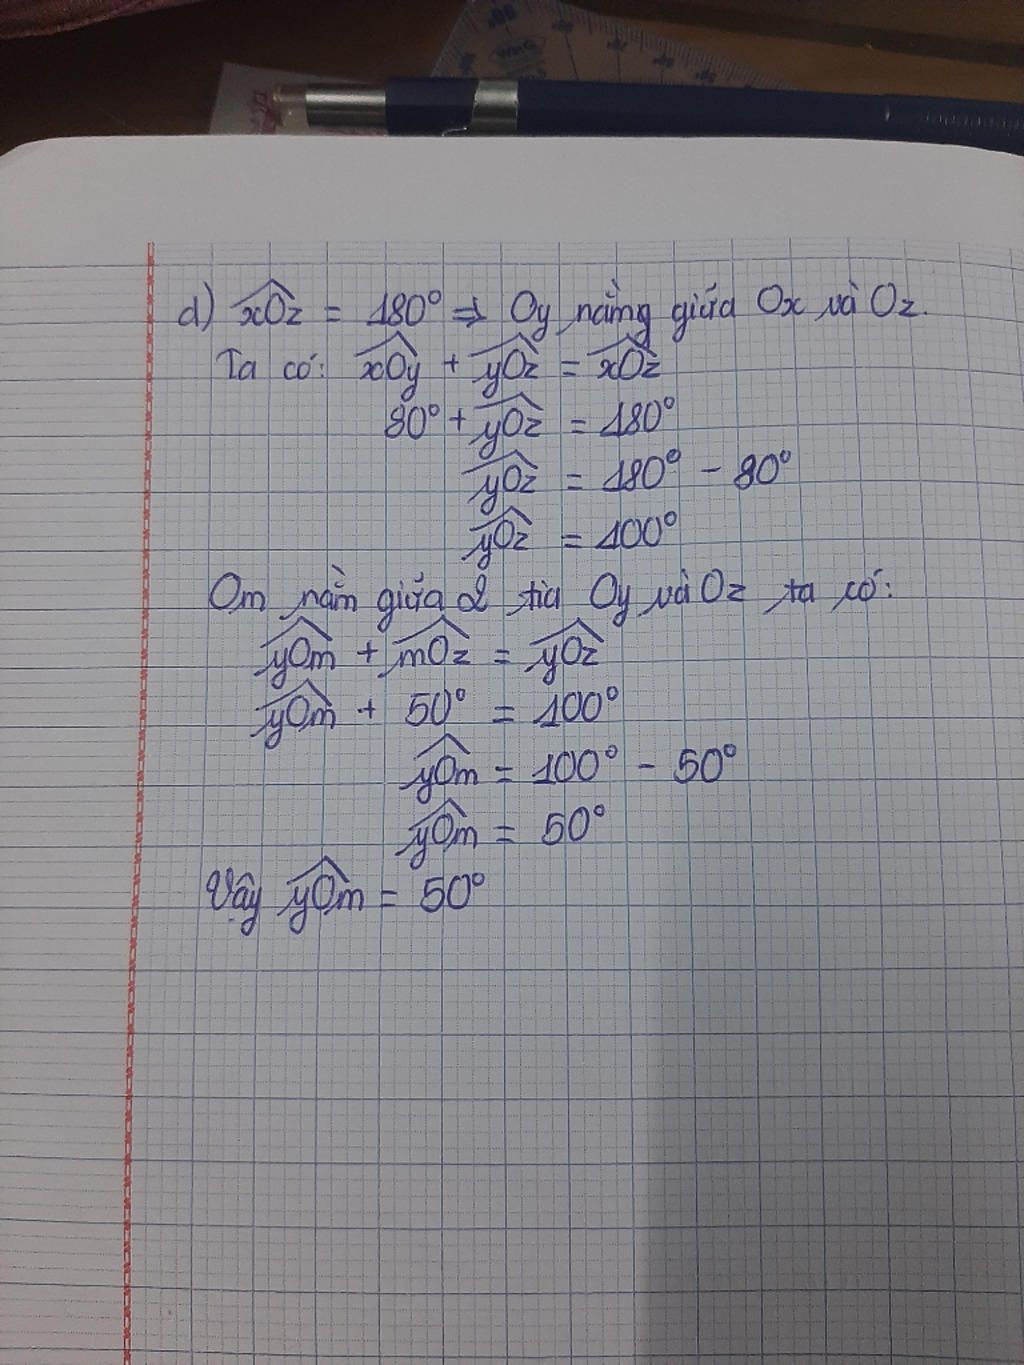 WinG
d) xOz = 180° ⇒ Oy nằm giữa Ox và Oz.
Ta có: xOy + yOz = xOz
80° + yOz = 180°
yOz = 180° - 80°
yOz = 100°
Om nằm giữa 2 tia Oy và Oz ta có:
yOm + mOz = yOz
yOm + 50° = 100°
yOm = 100° - 50°
yOm = 50°
Vậy yOm = 50°